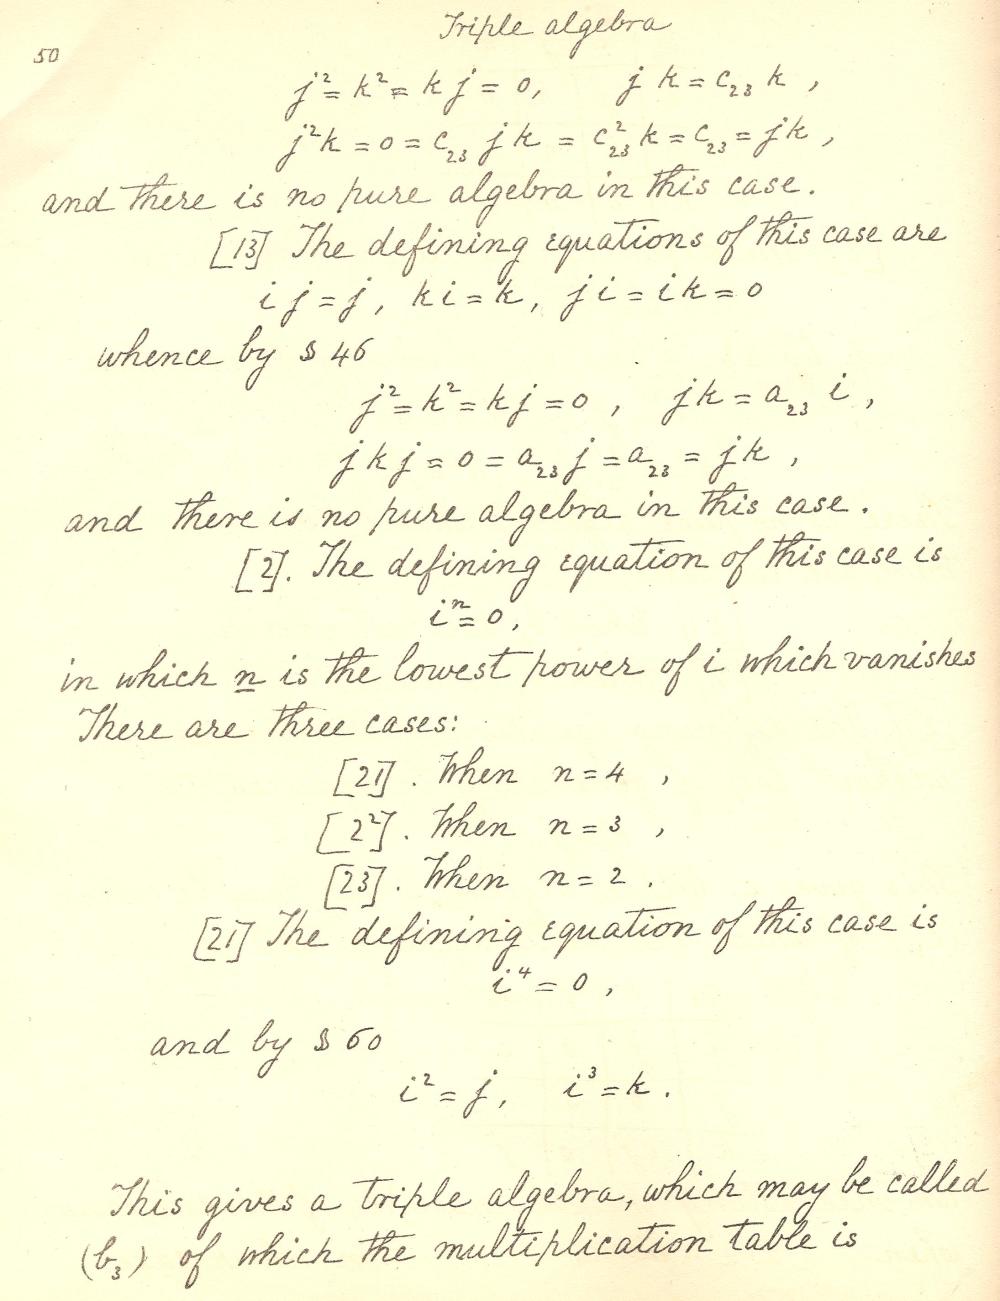 Triple algebra
50
j² = k² = kj = 0, jk = c₂₃ k,
j²k = 0 = c₂₃ jk = c²₂₃ k = c₂₃ = jk,
and there is no pure algebra in this case.
[13] The defining equations of this case are
ij = j, ki = k, ji = ik = 0
whence by § 46
j² = k² = kj = 0, jk = a₂₃ i,
jkj = 0 = a₂₃ j = a₂₃ = jk,
and there is no pure algebra in this case.
[2]. The defining equation of this case is
iⁿ = 0,
in which n is the lowest power of i which vanishes
There are three cases:
[21]. When n = 4,
[2²]. When n = 3,
[23]. When n = 2.
[21] The defining equation of this case is
i⁴ = 0,
and by § 60
i² = j, i³ = k.
This gives a triple algebra, which may be called
(b₃) of which the multiplication table is